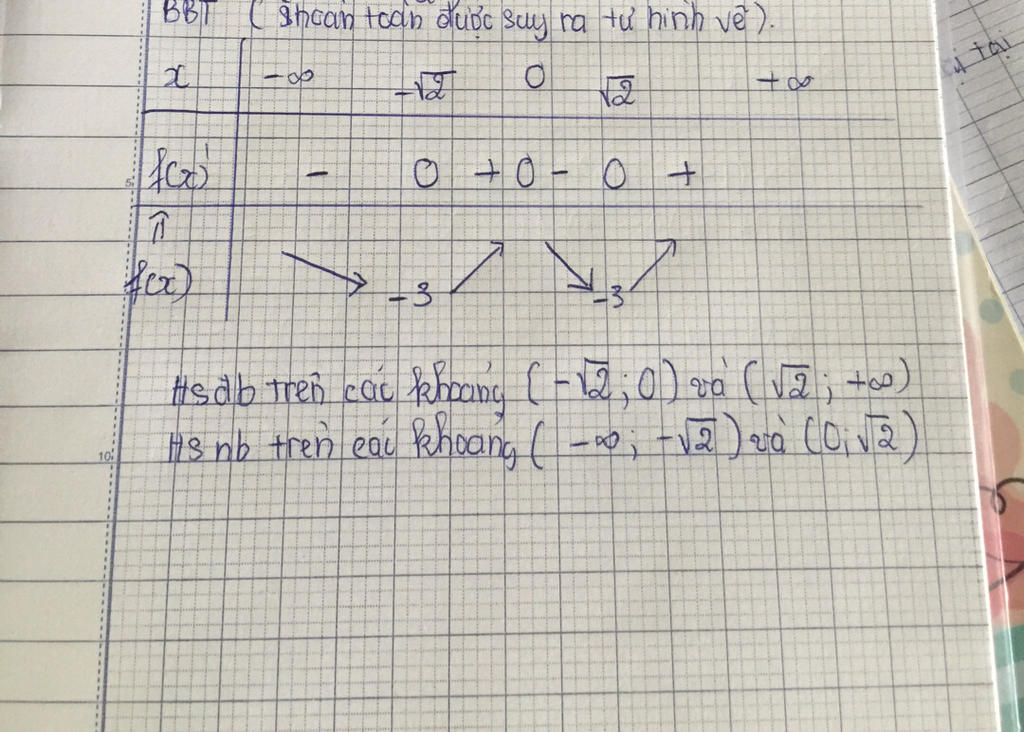 BBT ( hoàn toàn được suy ra từ hình vẽ).
x -∞ -√2 0 √2 +∞
f(x)' - 0 + 0 - 0 +
f(x) -3 -3
Hs đb trên các khoảng (-√2; 0) và (√2; +∞)
Hs nb trên các khoảng (-∞; -√2) và (0; √2)
5
10
tại